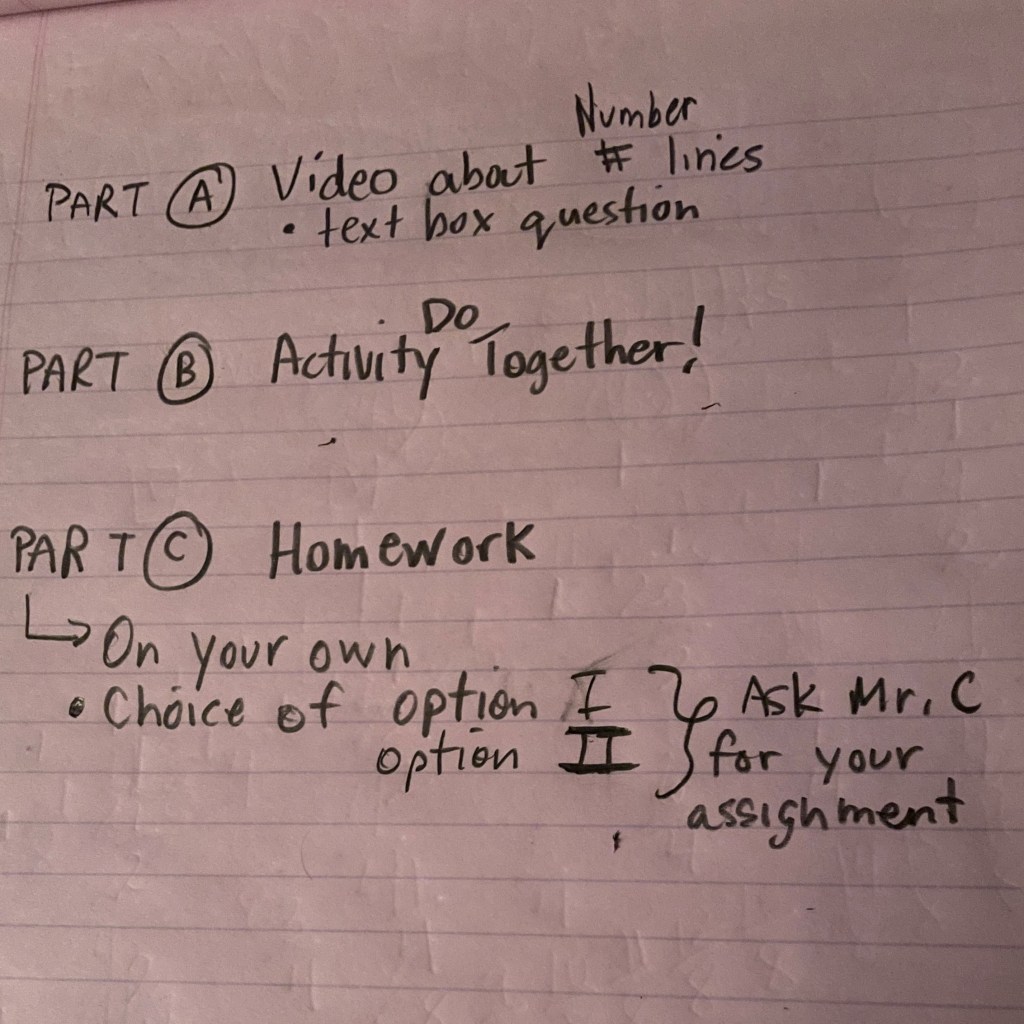 Number
PART A Video about # lines
• text box question
Do
PART B Activity Together!
PART C Homework
↳ On your own
• Choice of option I } Ask Mr. C
option II for your
assignment